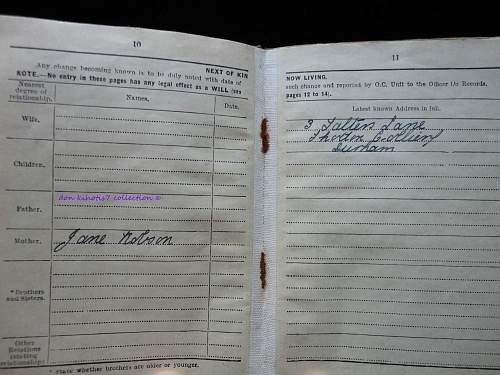 10
Any change becoming known is to be duly noted with date of
NEXT OF KIN
NOTE.—No entry in these pages has any legal effect as a WILL (see
Nearest degree of relationship.
Names.
Date.
Wife.
Children.
don kihotis7 collection ©
Father.
Mother.
Jane Robson
* Brothers and Sisters.
Other Relations (stating relationship)
* state whether brothers are older or younger.
11
NOW LIVING.
such change and reported by O.C. Unit to the Officer i/c Records.
pages 12 to 14).
Latest known Address in full.
3 Lane
Durham